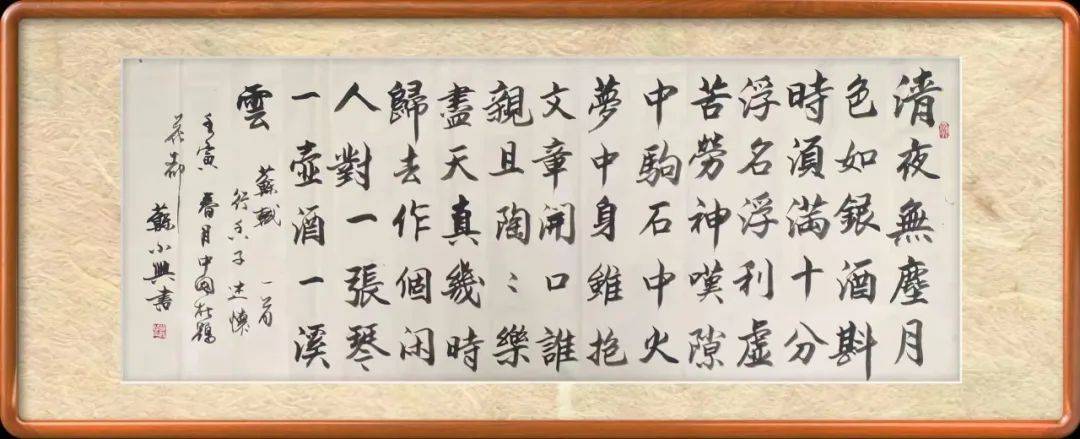 清夜無塵月
色如銀酒斟
時須滿十分
浮名浮利虛
苦勞神嘆隙
中駒石中火
夢中身雖抱
文章開口誰
親且陶〻樂
盡天真幾時
歸去作個闲
人對一張琴
一壺酒一溪
雲
蘇軾 行香子 述懷 一首
壬寅 春月中國杜鵑
花都 蘇小興書